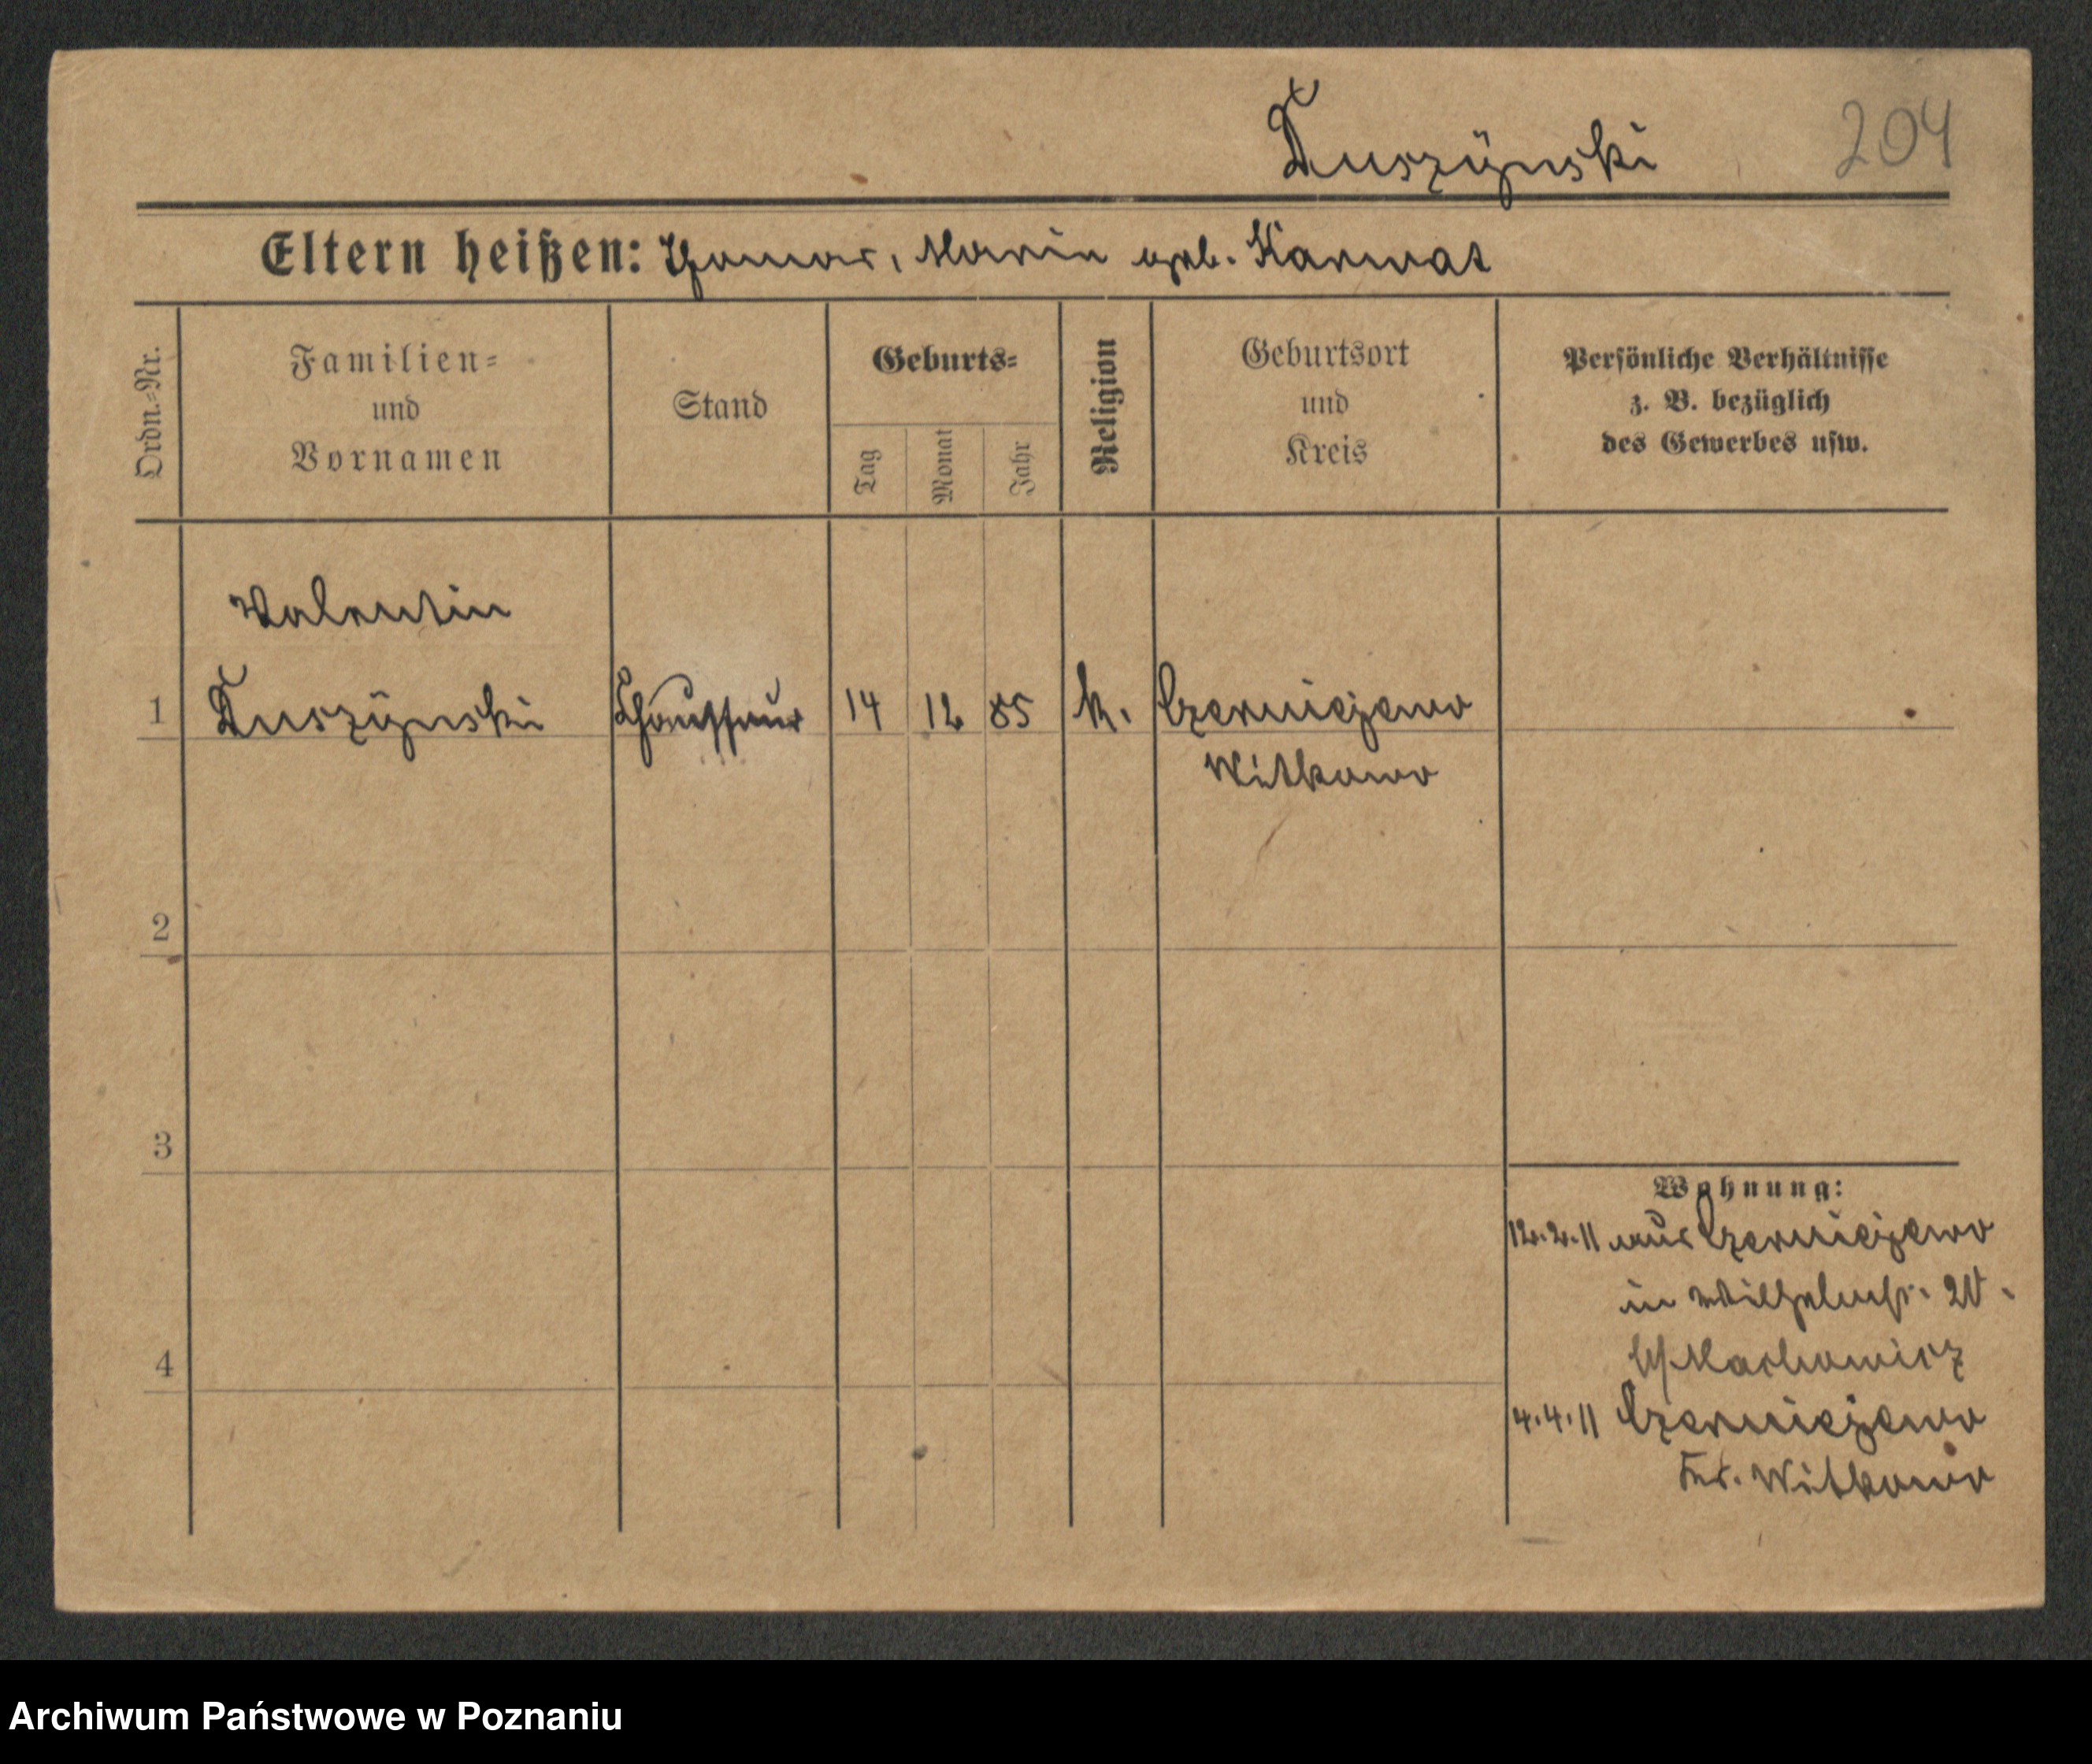 Duszÿnski
204
Eltern heißen: Thomas, Maria geb. Karwat
Ordn.-Nr.
Familien-
und
Vornamen
Stand
Geburts-
Tag
Monat
Jahr
Religion
Geburtsort
und
Kreis
Persönliche Verhältnisse
z. B. bezüglich
des Gewerbes usw.
Valentin
1 Duszÿnski Chauffeur 14 12 85 k. Czerniejewo
Witkowo
2
3
4
Wohnung:
12.2.11 aus Czerniejewo
in Wilhelmstr. 20.
b/Machowicz
4.4.11 Czerniejewo
Krs. Witkowo
Archiwum Państwowe w Poznaniu